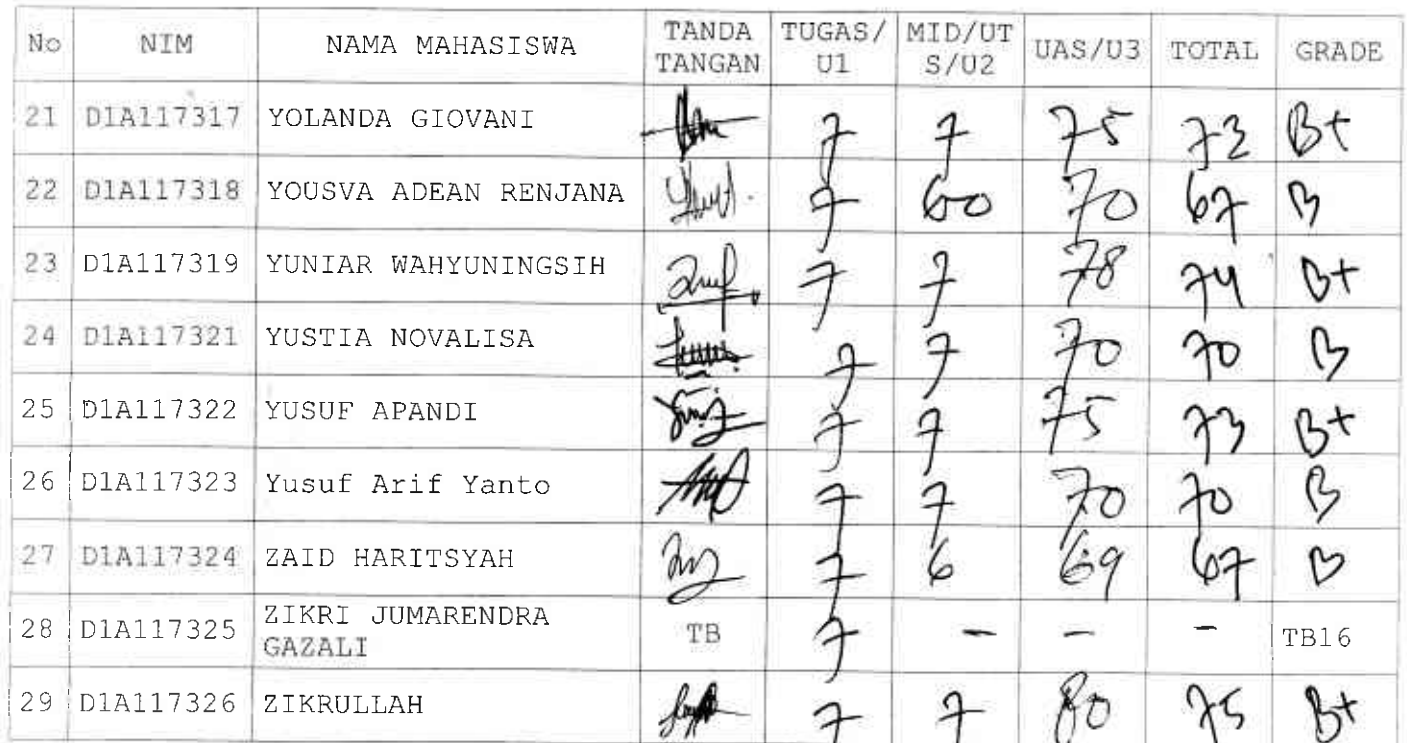 No NIM NAMA MAHASISWA TANDA TANGAN TUGAS/U1 MID/UTS/U2 UAS/U3 TOTAL GRADE
21 D1A117317 YOLANDA GIOVANI 7 7 75 73 B+
22 D1A117318 YOUSVA ADEAN RENJANA 7 60 70 67 B
23 D1A117319 YUNIAR WAHYUNINGSIH 7 7 78 74 B+
24 D1A117321 YUSTIA NOVALISA 7 7 70 70 B
25 D1A117322 YUSUF APANDI 7 7 75 73 B+
26 D1A117323 Yusuf Arif Yanto 7 7 70 70 B
27 D1A117324 ZAID HARITSYAH 7 6 69 67 B
28 D1A117325 ZIKRI JUMARENDRA GAZALI TB 7 - - - TB16
29 D1A117326 ZIKRULLAH 7 7 80 75 B+